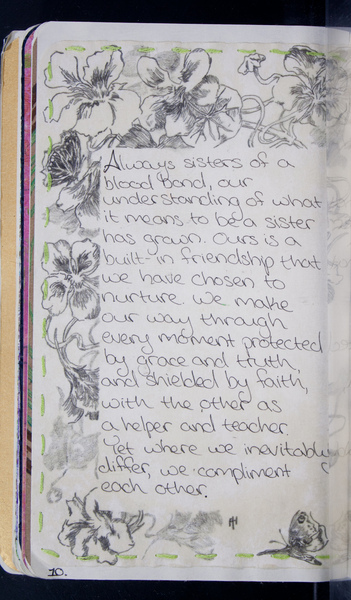 Always sisters of a
blood bond, our
understanding of what
it means to be a sister
has grown. Ours is a
built-in friendship that
we have chosen to
nurture. We make
our way through
every moment protected
by grace and truth,
and shielded by faith,
with the other as
a helper and teacher.
Yet where we inevitably
differ, we compliment
each other.
10.